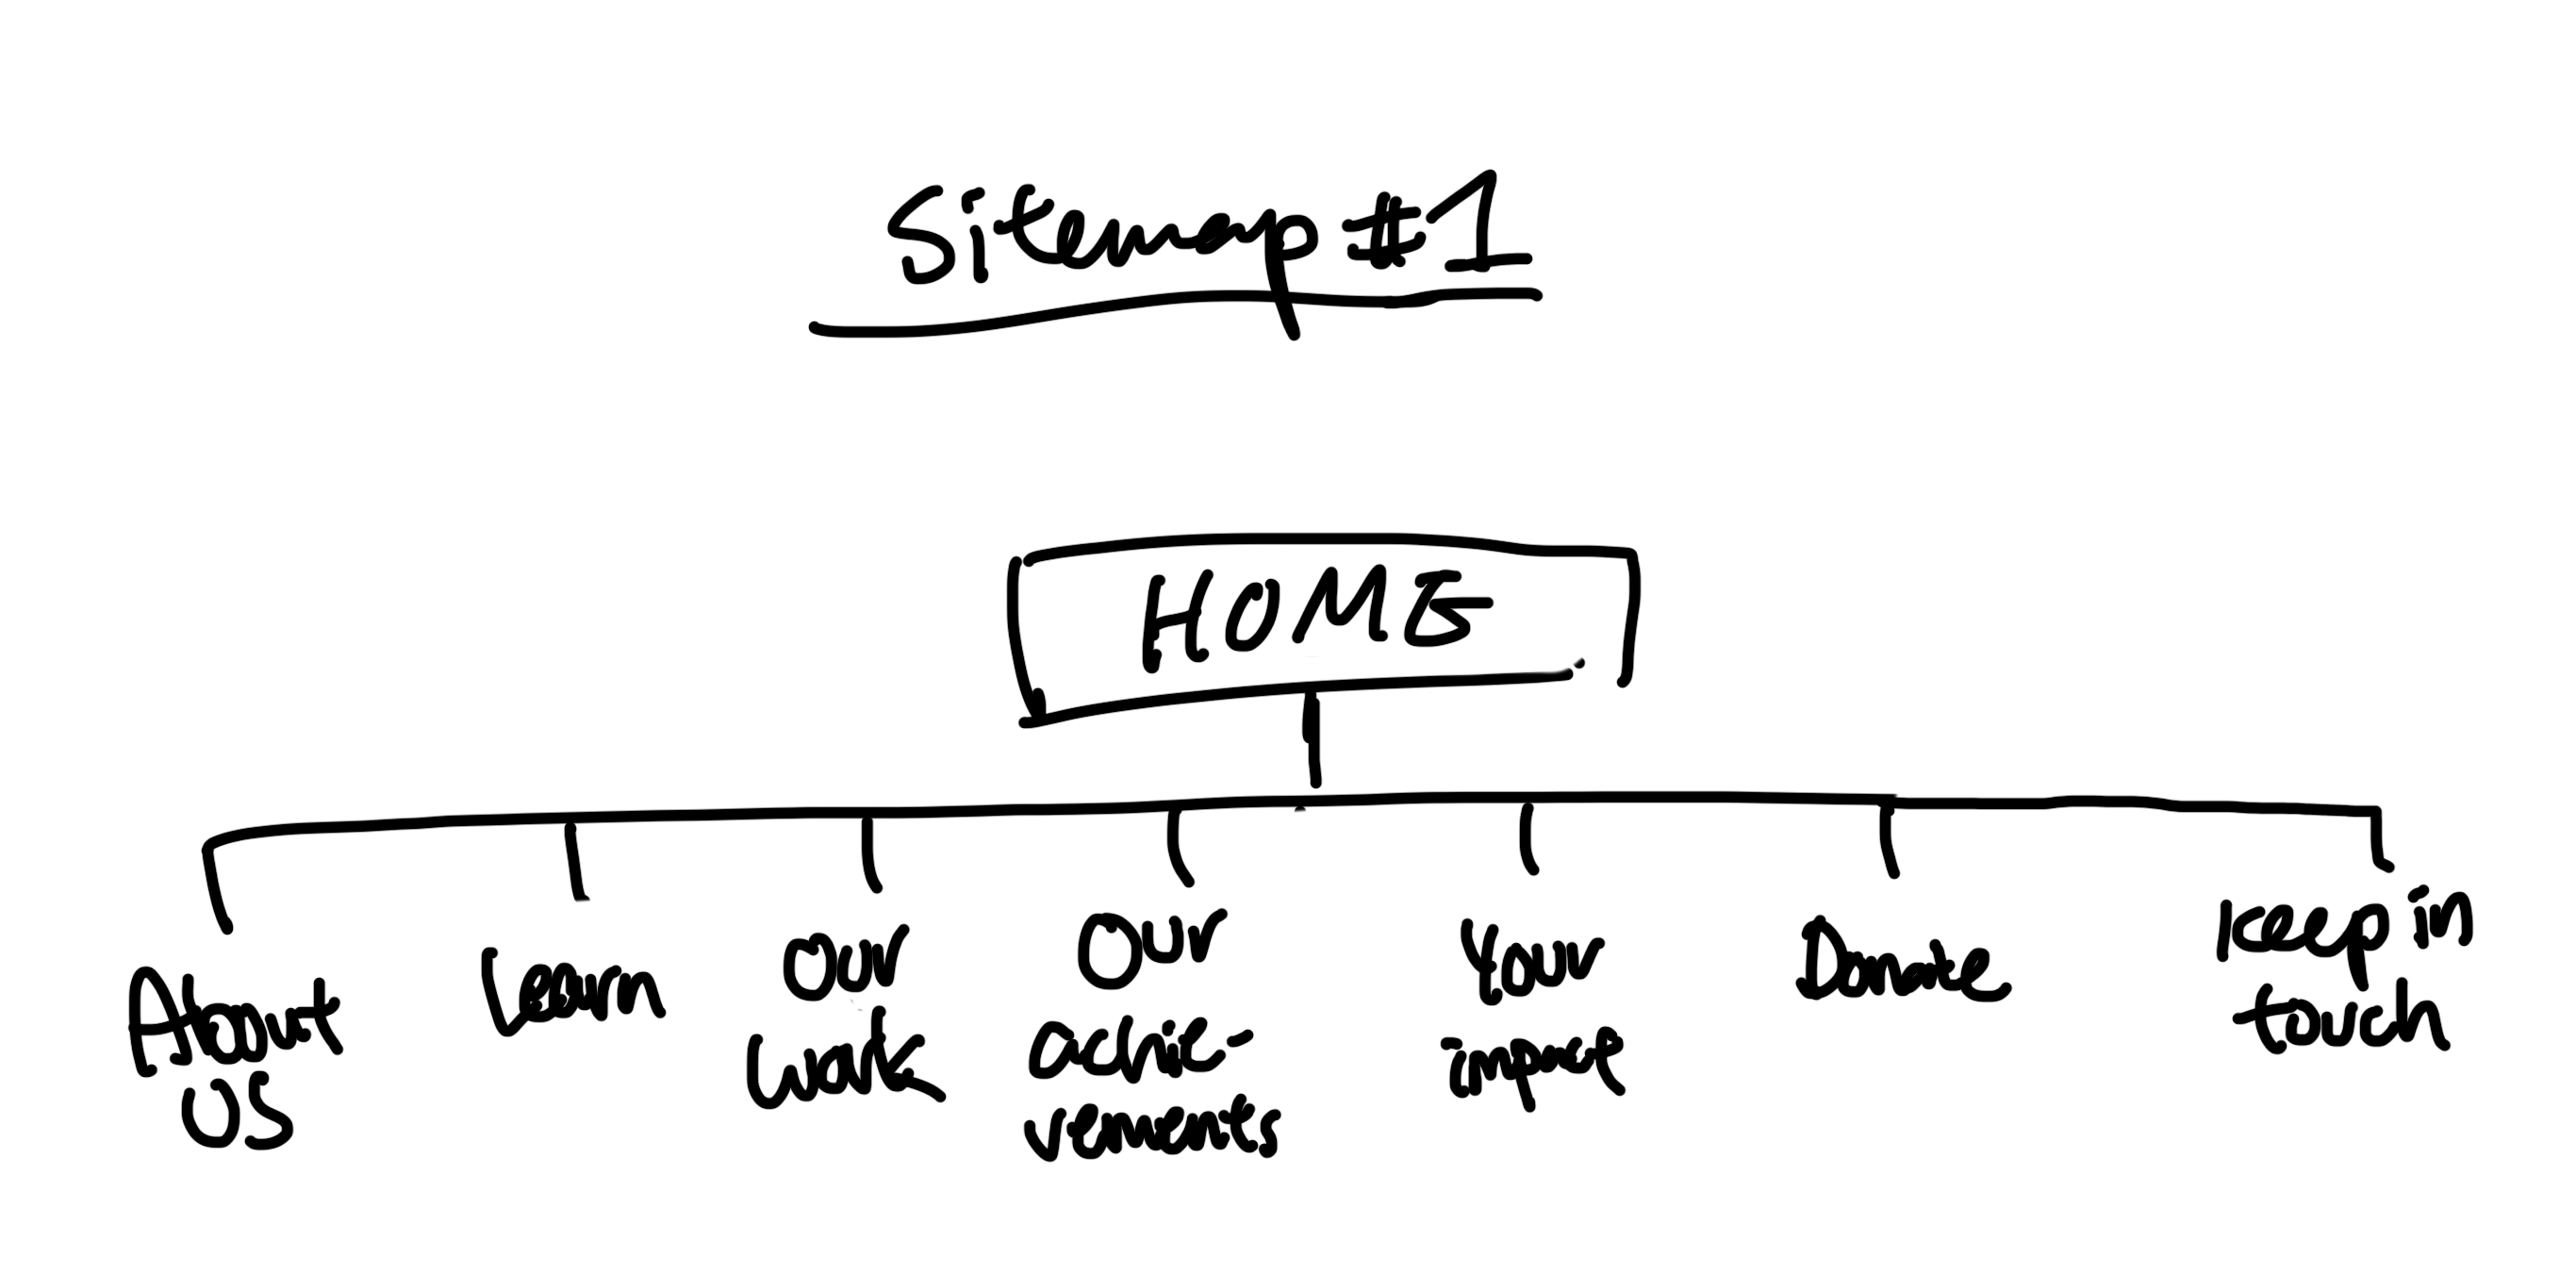 Sitemap #1
HOME
About
US
Learn
Our
work
Our
achie-
vements
Your
impact
Donate
Keep in
touch